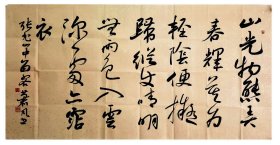 山光物態弄
春輝莫為
輕陰便擬
歸縱使晴明
無雨色入雲
深處亦霑
衣
張旭